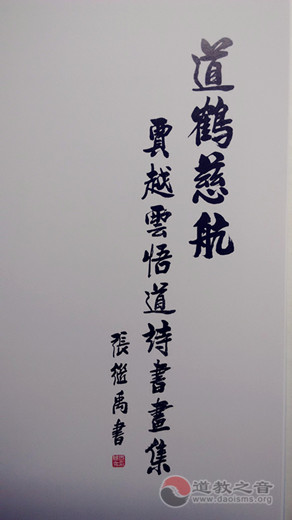 道鶴慈航
賈越雲悟道詩書畫集
張繼禹書
道教之音
www.daoisms.org